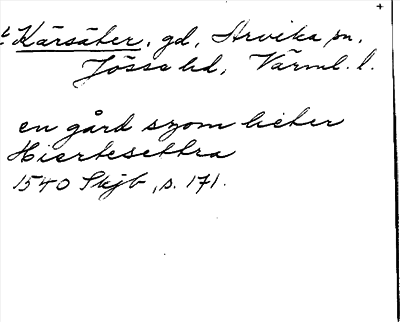 +
t Kärsäter, gd, Arvika sn,
Jösse hd, Värml. l.
en gård szom heter
Hiertesettra
1540 Skjb, s. 171.